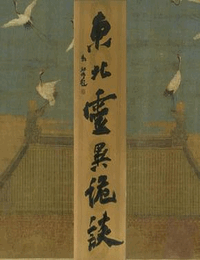 東北靈異詭談